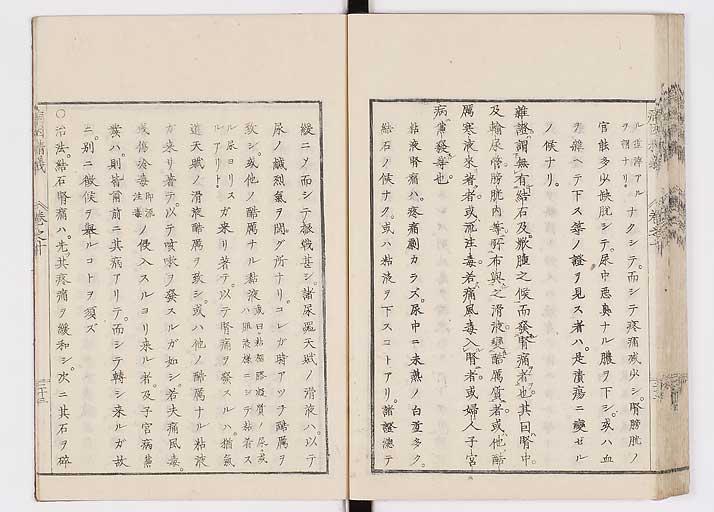 ナクシテ。而シテ疼痛減少シ。腎膀胱ノ
官能多少缺脱シテ。尿中悪臭ナル膿ヲ下シ。或ハ血
ヲ雜ヘテ下ス等ノ證ヲ見ス者ハ。是潰瘍ニ變ゼル
ノ候ナリ。
雜證謂無有結石及㷔腫之候而發腎痛者也。其因腎中
及輸尿管膀胱内等所布與之滑液變酷厲質者或他酷
厲寒液來著者或流注毒若痛風毒入腎者或婦人子宮
病兼發等也
粘液腎痛ハ。疼痛劇カラズ。尿中ニ未熟ノ白量多ク。
結石ノ候ナク。或ハ粘液ヲ下スコトアリ。諸證總テ
緩ニメ而シテ
尿ノ鹹烈氣ヲ防グ所ナリ。コレガ時アツテ酷厲ヲ
致シ。或他ノ酷厲ナル粘液
ル尿ヨリス
ルアリト
ガ來リ著テ。以テ腎痛ヲ發スルハ。猶氣
道天賦ノ滑液酷厲ヲ致シ。或ハ他ノ酷厲ナル粘液
ガ來リ著テ。以テ咳嗽ヲ發スルガ如シ。若夫痛風毒。
或傷冷毒
即流
注毒
ノ侵入スルヨリ來ル者。及子宮病兼
發ハ。則皆前ニ其病アリテ。而シテ轉シ來ルガ故
ニ。別ニ徴候ヲ擧ルコトヲ須ズ
○治法。結石腎痛ハ。先其疼痛ヲ緩和シ。次ニ其石ヲ碎